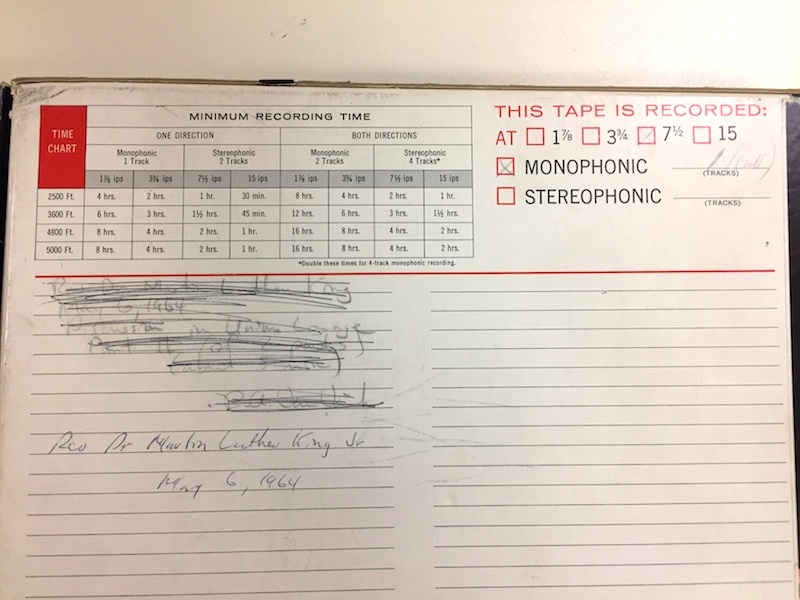 TIME CHART
MINIMUM RECORDING TIME
ONE DIRECTION BOTH DIRECTIONS
Monophonic 1 Track Stereophonic 2 Tracks Monophonic 2 Tracks Stereophonic 4 Tracks*
1⅞ ips 3¾ ips 7½ ips 15 ips 1⅞ ips 3¾ ips 7½ ips 15 ips
2500 Ft. 4 hrs. 2 hrs. 1 hr. 30 min. 8 hrs. 4 hrs. 2 hrs. 1 hr.
3600 Ft. 6 hrs. 3 hrs. 1½ hrs. 45 min. 12 hrs. 6 hrs. 3 hrs. 1½ hrs.
4800 Ft. 8 hrs. 4 hrs. 2 hrs. 1 hr. 16 hrs. 8 hrs. 4 hrs. 2 hrs.
5000 Ft. 8 hrs. 4 hrs. 2 hrs. 1 hr. 16 hrs. 8 hrs. 4 hrs. 2 hrs.
*Double these times for 4-track monophonic recording.
THIS TAPE IS RECORDED:
AT 1⅞ 3¾ 7½ 15
MONOPHONIC 1 (full)
(TRACKS)
STEREOPHONIC
(TRACKS)
Rev Dr Martin Luther King
May 6, 1964
Discussion in Union Lounge
Part II (of 2 parts)
Rev Dr Martin Luther King Jr
May 6, 1964